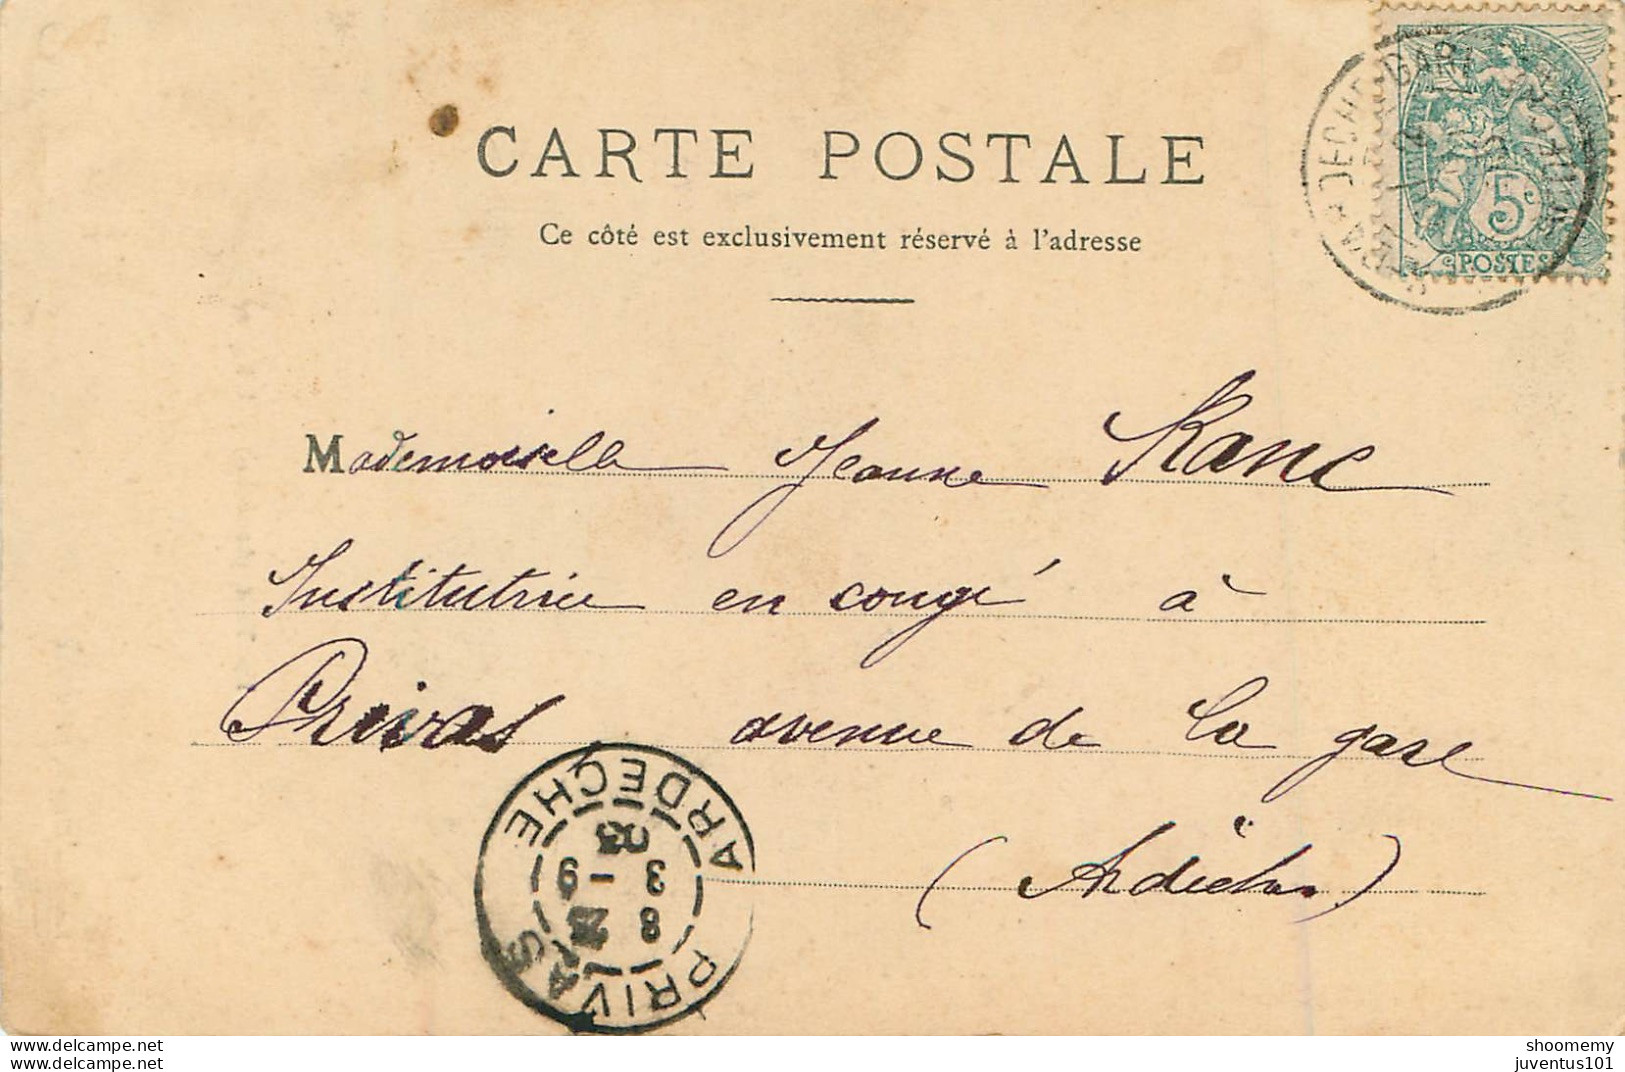 CARTE POSTALE
Ce côté est exclusivement réservé à l'adresse
5c
POSTES
Mademoiselle Jeanne Ranc
Institutrice en congé à
Privas avenue de la gare
(Ardèche)
PRIVAS ARDECHE
8
3 - 9
03
www.delcampe.net
www.delcampe.net
shoomemy
juventus101